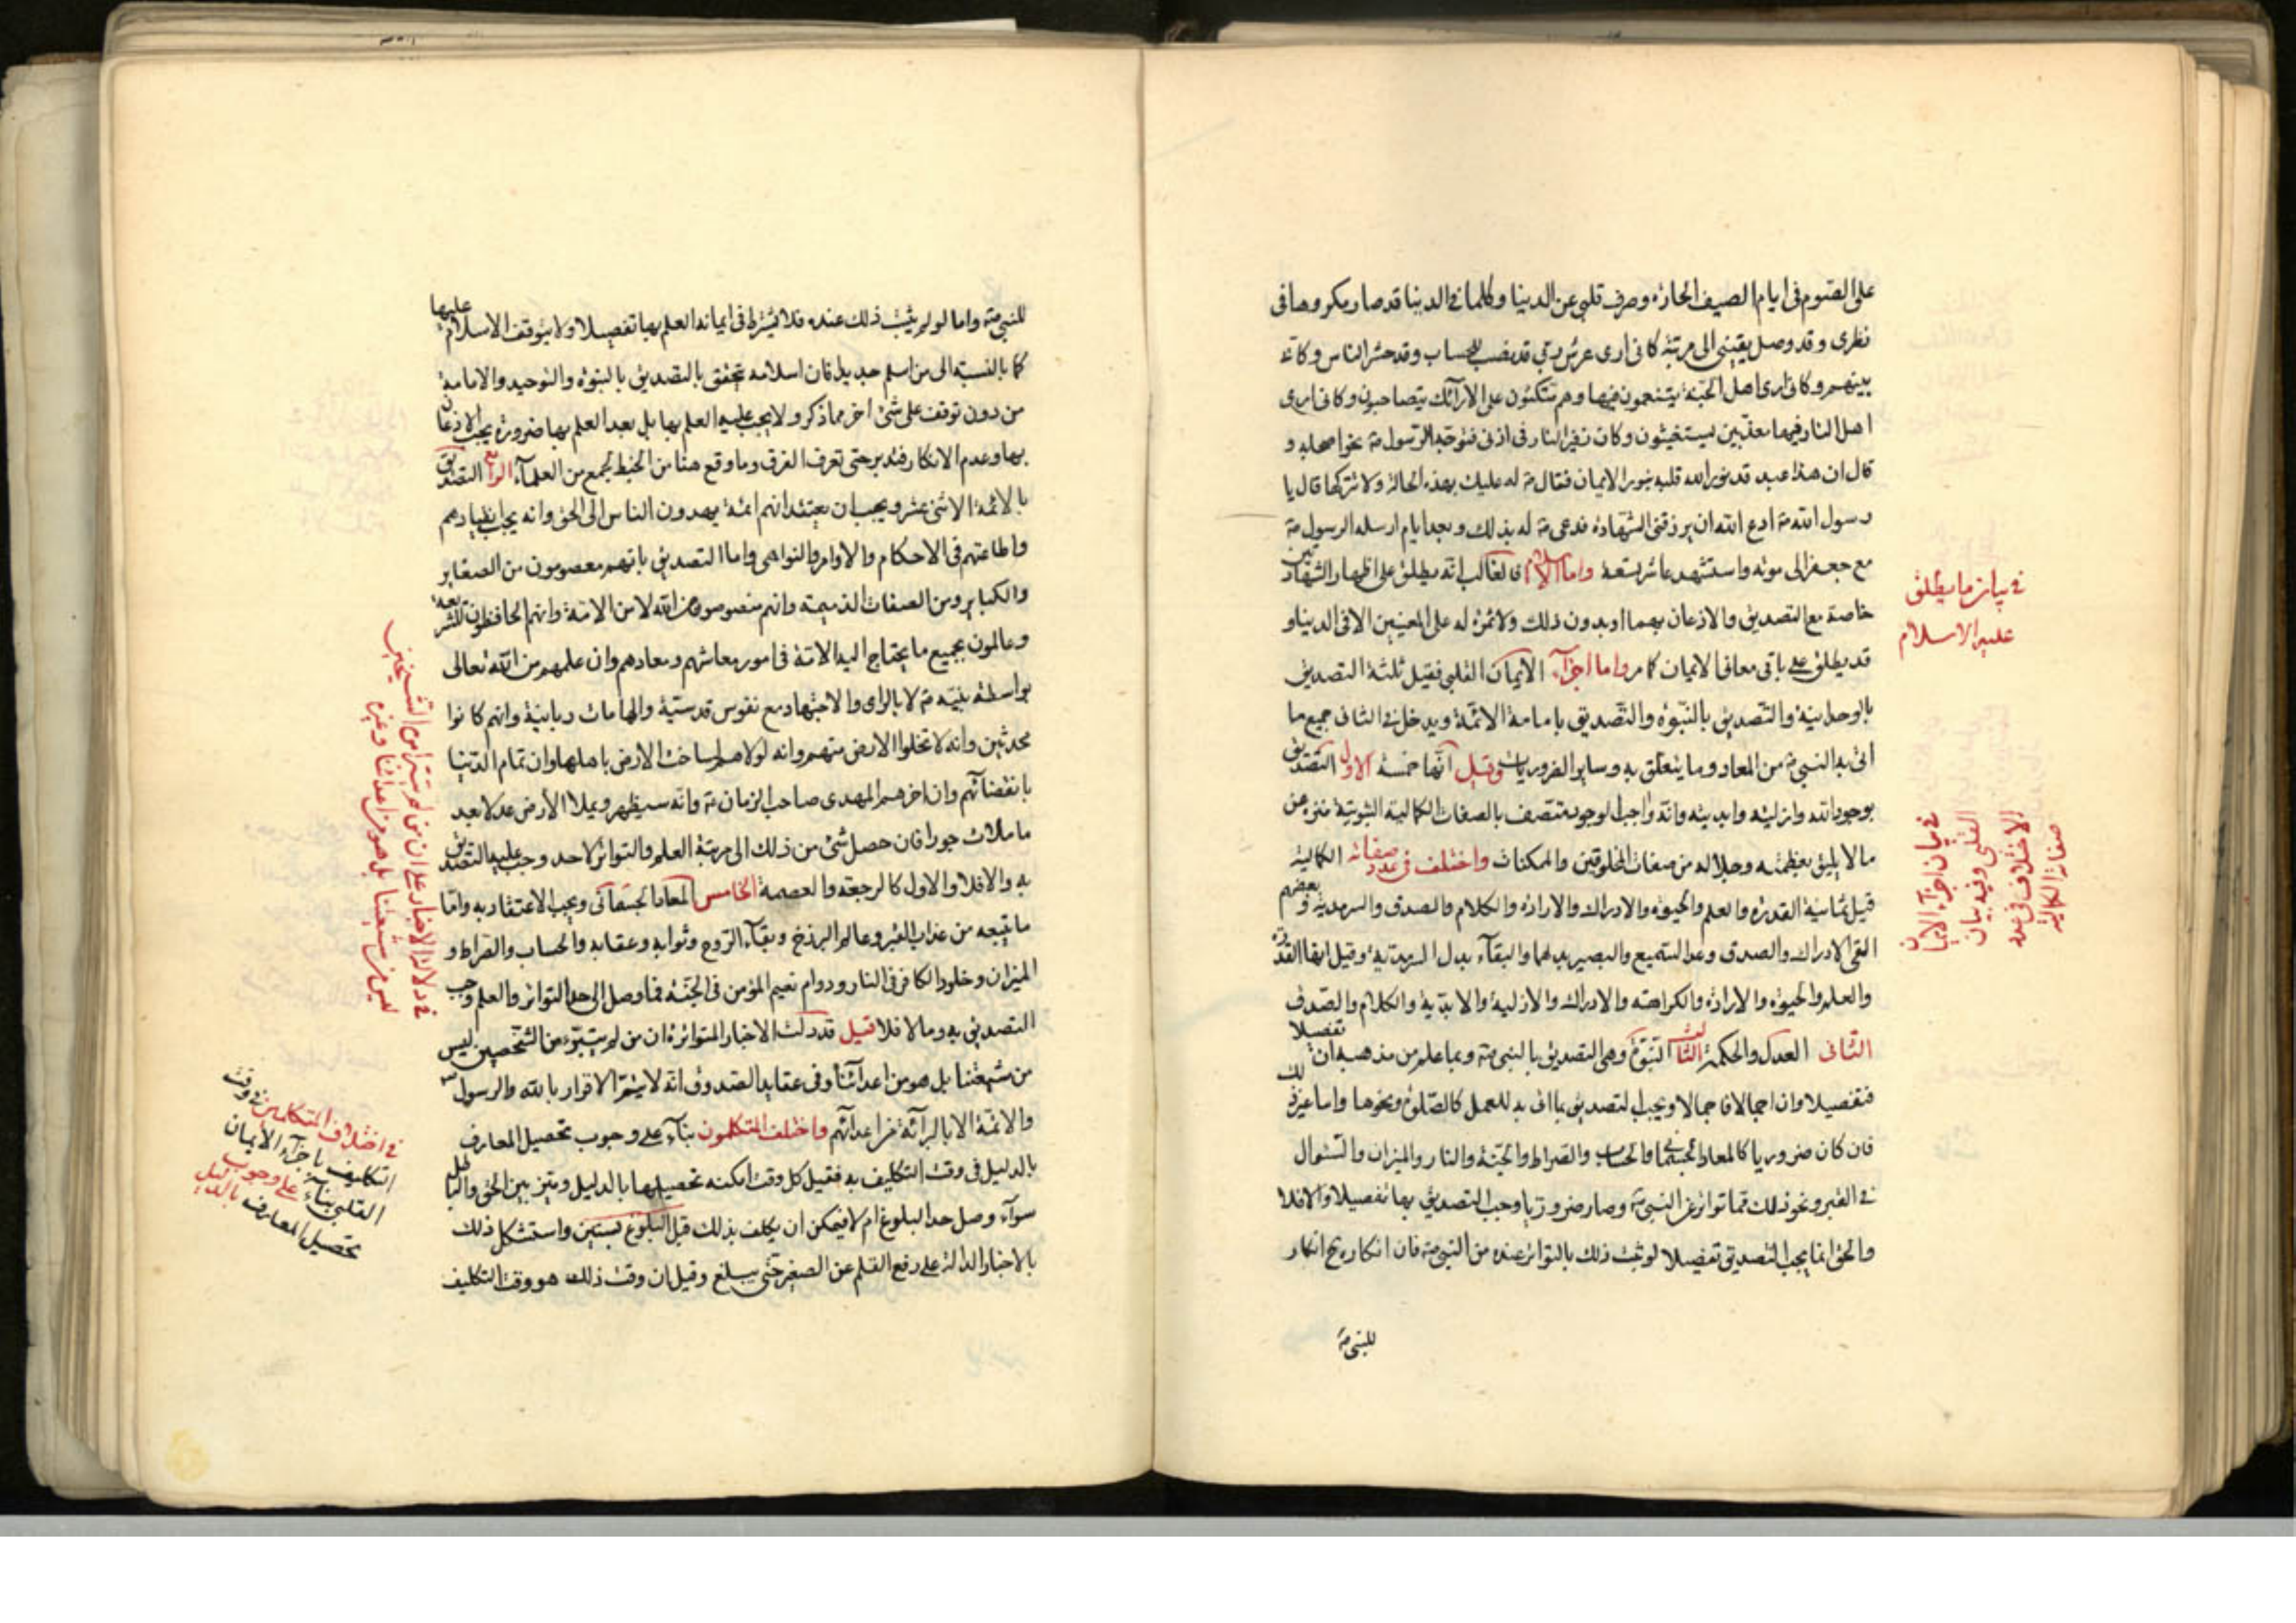 على الصوم فى ايام الصيف الحارة وصرف قلبى عن الدنيا وكلما فى الدنيا قد صار مكروها فى
نظرى وقد وصل يقينى الى مرتبة كانى ارى عرش ربى قد نصب للحساب وقد حشر الناس وكانه
بينهم وكانى ارى اهل الجنة يتنعمون فيها وهم متكئون على الارآئك يتصاحبون وكانى ارى
اهل النار فيها معذبين يستغيثون وكان زفير النار فى اذنى فتوجه الرسول ص نحو اصحابه و
قال ان هذا عبد قد نور الله قلبه بنور الايمان فقال ص له عليك بهذه الحالة ولا تتركها قال يا
رسول الله ص ادع الله ان يرزقنى الشهادة فدعى ص له بذلك وبعد ايام ارسله الرسول ص
مع جعفر الى موته واستشهد عاشر تسعة واما الاسلام فالغالب انه يطلق على اظهار الشهادتين
خاصة مع التصديق والاذعان بهما او بدون ذلك ولا ثمرة له على المعنيين الا فى الدنيا و
قد يطلق على باقى معانى الايمان كما مر واما اجزآء الايمان القلبى فقيل ثلثة التصديق
بالوحدانية والتصديق بالنبوة والتصديق بامامة الائمة ويدخل فى الثانى جميع ما
اتى به النبى ص من المعاد وما يتعلق به وساير الضروريات وقيل انها خمسة الاول التصديق
بوجود الله وازليته وابديته وانه واجب الوجود متصف بالصفات الكمالية الثبوتية منزه عن
ما لا يليق بعظمته وجلاله من صفات المخلوقين والممكنات واختلف فى عدد صفاته الكمالية
قيل ثمانية القدرة والعلم والحيوة والادراك والارادة والكلام والصدق والسرمدية وبعضهم
القى الادراك والصدق وعد السميع والبصير بدلهما والبقآء بدل السرمدية وقيل انها القدرة
والعلم والحيوة والارادة والكراهة والادراك والازلية والابدية والكلام والصدق
الثانى العدل والحكمة الثالث النبوة وهى التصديق بالنبى ص وبما علم من مذهبه ان تفصيلا
فتفصيلا وان اجمالا فاجمالا ويجب التصديق بما اتى به للعمل كالصلوة ونحوها واما غير ذلك
فان كان ضروريا كالمعاد الجسمانى والحساب والصراط والجنة والنار والميزان والسئوال
فى القبر ونحو ذلك فما تواتر عن النبى ص وصار ضروريا وجب التصديق بها تفصيلا والا فلا
والحق انما يجب التصديق تفصيلا لو ثبت ذلك بالتواتر عنده من النبى ص فان انكاره ح انكار
للنبى ص
فى بيان ما يطلق
عليه الاسلام
فى بيان اجزآء الايمان
القلبى وفيه بيان
الاختلاف فى عدد
صفاته الكمالية
للنبى ص واما لو لم يثبت ذلك عنده فلا يشترط فى ايمانه العلم بها تفصيلا ولا يتوقف الاسلام عليها
كما بالنسبة الى من اسلم جديدا فان اسلامه تحقق بالتصديق بالنبوة والتوحيد والامامة
من دون توقف على شئ اخر مما ذكر ولا يجب عليه العلم بها بل بعد العلم بها ضرورة يجب الاذعان
بها وعدم الانكار فتدبر حتى تعرف الفرق وما وقع هنا من الخبط لجمع من العلمآء الرابع التصديق
بالائمة الاثنى عشر ويجب ان يعتقد انهم ائمة يهدون الناس الى الحق وانه يجب انقيادهم
واطاعتهم فى الاحكام والاوامر والنواهى واما التصديق بانهم معصومون من الصغاير
والكباير ومن الصفات الذميمة وانهم منصوصون من الله لا من الامة وانهم الحافظون للشريعة
وعالمون بجميع ما يحتاج اليه الامة فى امور معاشهم ومعادهم وان علمهم من الله تعالى
بواسطة نبيه ص لا بالراى والاجتهاد مع نفوس قدسية والهامات ربانية وانهم كانوا
محدثين وانه لا تخلوا الارض منهم وانه لولاهم لساخت الارض باهلها وان تمام الدنيا
بانقضائهم وان اخرهم المهدى صاحب الزمان ص وانه سيظهر ويملا الارض عدلا بعد
ما ملات جورا فان حصل شئ من ذلك الى مرتبة العلم والتواتر لاحد وجب عليه التصديق
به والا فلا والاول كالرجعة والعصمة الخامس المعاد الجسمانى ويجب الاعتقاد به واما
ما يتبعه من عذاب القبر وعالم البرزخ وبقآء الروح وثوابه وعقابه والحساب والصراط و
الميزان وخلود الكافر فى النار ودوام نعيم المؤمن فى الجنة فما وصل الى حد التواتر والعلم وجب
التصديق به وما لا فلا قيل قد دلت الاخبار المتواترة ان من لم يتبرء من الشخصين ليس
من شيعتنا بل هو من اعدآئنا وفى عقايد الصدوق انه لا يتم الاقرار بالله والرسول
والائمة الا بالبرآئة من اعدآئهم واختلف المتكلمون بنآء على وجوب تحصيل المعارف
بالدليل فى وقت التكليف به فقيل كل وقت امكنه تحصيلها بالدليل وميز بين الحق والباطل
سوآء وصل حد البلوغ ام لا فيمكن ان يكلف بذلك قبل البلوغ بسنين واستشكل ذلك
بالاخبار الدالة على رفع القلم عن الصغير حتى يبلغ وقيل ان وقت ذلك هو وقت التكليف
فى دلالة الاخبار على ان من لم يتبر من الشيخين
ليس من شيعتنا بل هو من اعدائنا وغيره
فى اختلاف المتكلمين فى وقت
التكليف باجزآء الايمان
القلبى بنآء على وجوب
تحصيل المعارف بالدليل